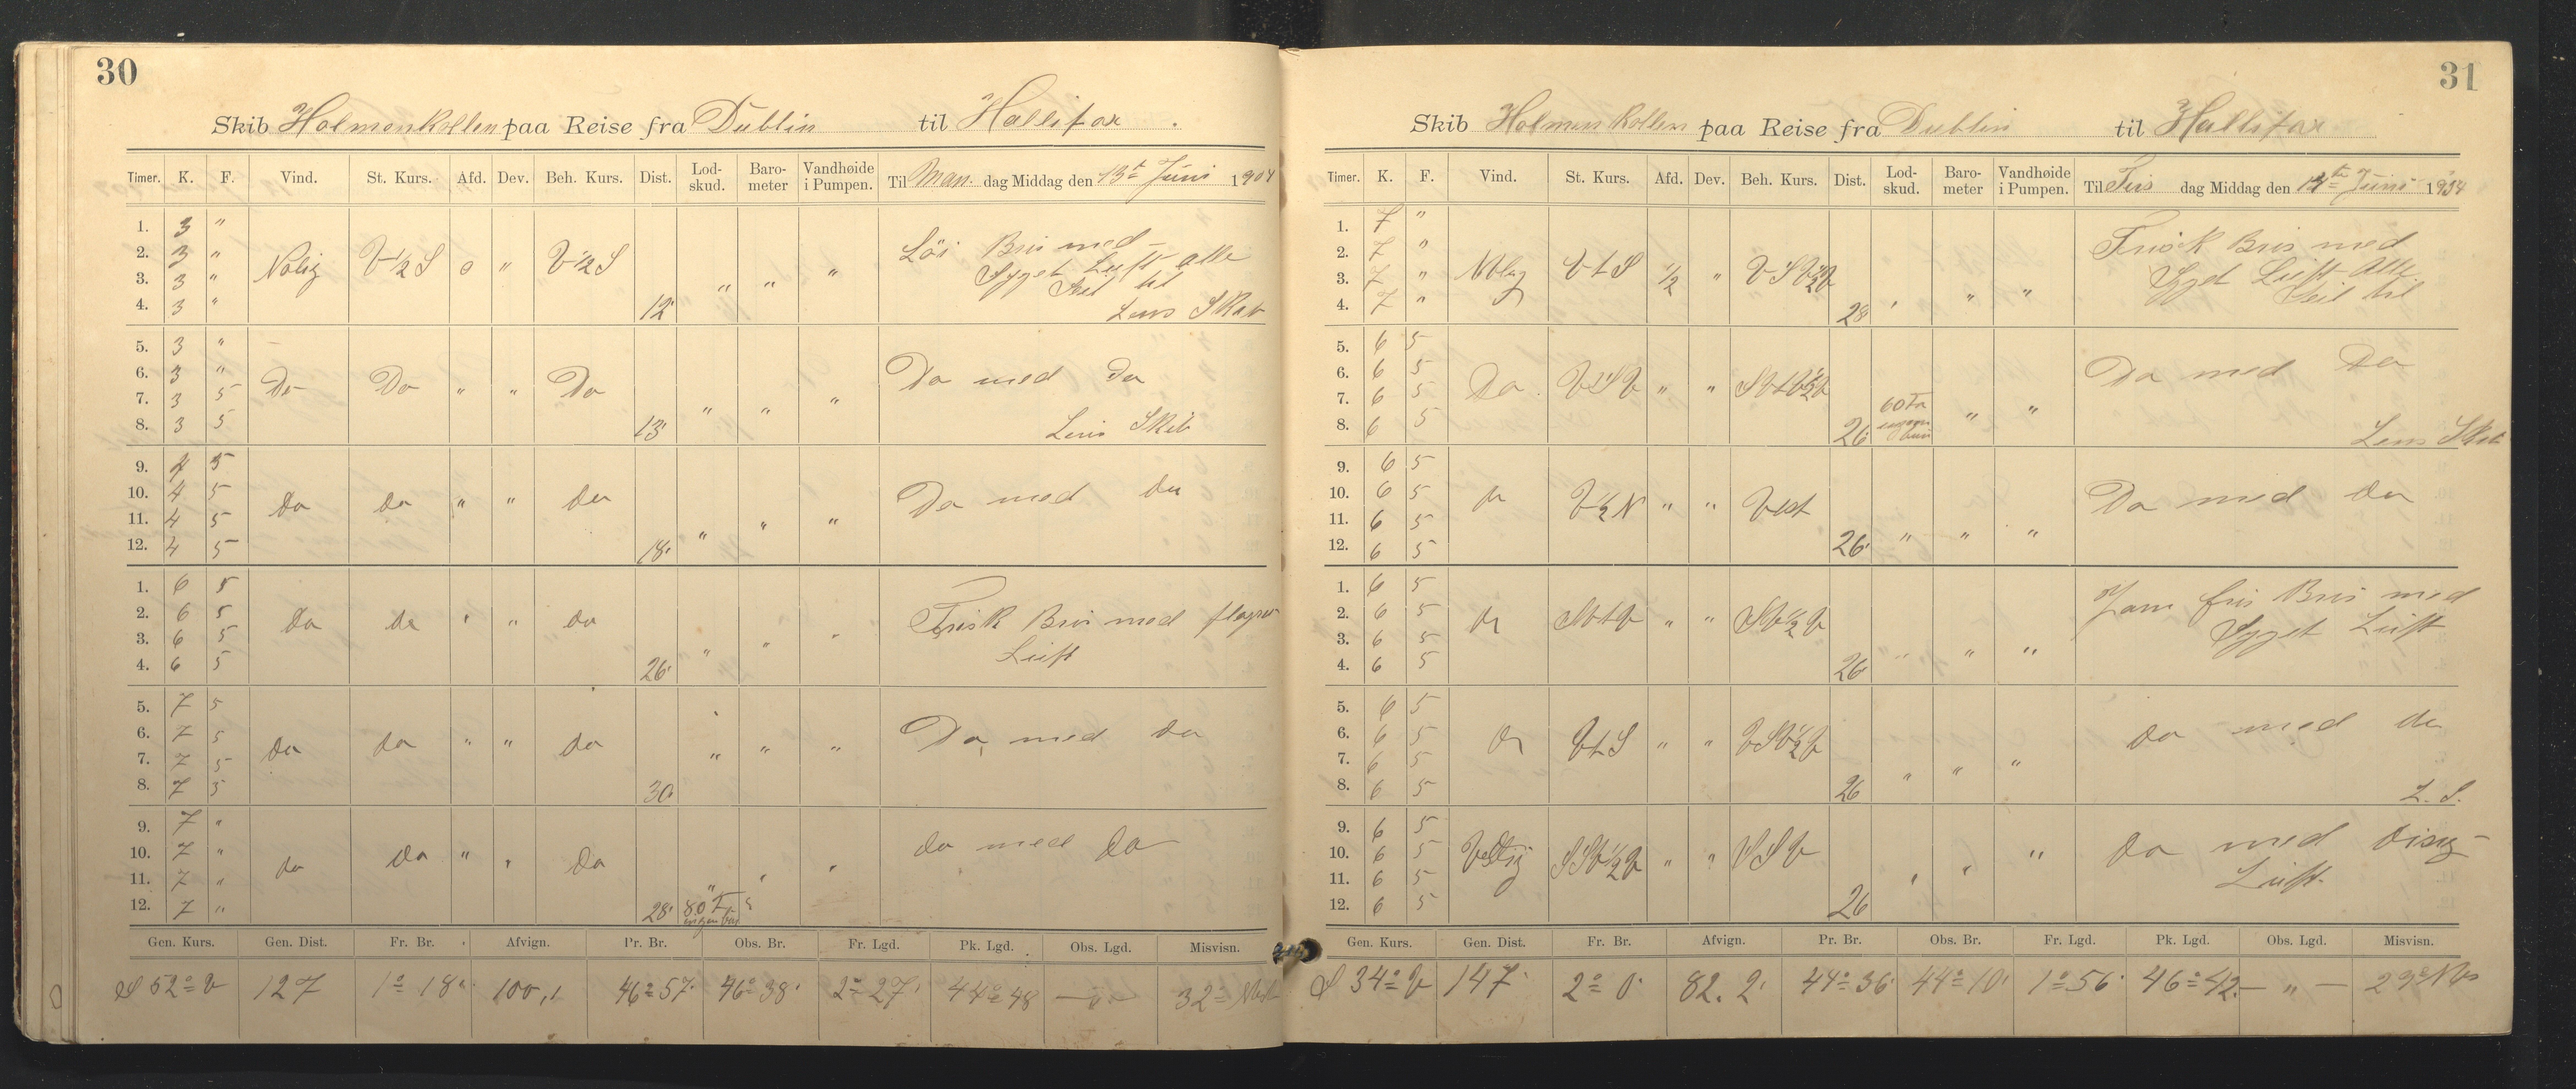 30
Skib Holmenkollen paa Reise fra Dublin til Hallifax
Timer. K. F. Vind. St. Kurs. Afd. Dev. Beh. Kurs. Dist. Lod-skud. Baro-meter Vandhøide i Pumpen. Til Man dag Middag den 13te Juni 1904
1. 3 "
2. 3 " Nolig V 1/2 S o " V 1/2 S Löi Bris med
3. 3 " " " " Sgyet Luft alle
Seil til
4. 3 " 12' Lens Skib
5. 3 "
6. 3 " Do Do " " Do Do med Do
7. 3 5 " " "
8. 3 5 13' Lens Skib
9. 4 5
10. 4 5 do do " " do Do med do
11. 4 5 " " "
12. 4 5 18'
1. 6 5
2. 6 5 do do " " do Frisk Bris med
3. 6 5 " " " Luft
4. 6 5 26'
5. 7 5
6. 7 5 do do " " do Do med do
7. 7 5 " " "
8. 7 5 30'
9. 7 "
10. 7 " do do " " do do med do
11. 7 " " " "
12. 7 " 28' 80 F ingen bun
Gen. Kurs. Gen. Dist. Fr. Br. Afvign. Pr. Br. Obs. Br. Fr. Lgd. Pk. Lgd. Obs. Lgd. Misvisn.
S 52° V 127 1° 18' 100,1 46° 57' 46° 38' 2° 27' 44° 48 — " — 32° Vest
31
Skib Holmenkollen paa Reise fra Dublin til Hallifax
Timer. K. F. Vind. St. Kurs. Afd. Dev. Beh. Kurs. Dist. Lod-skud. Baro-meter Vandhøide i Pumpen. Til Tirs dag Middag den 14te Juni 1904
1. 7 "
2. 7 " V t S 1/2 " Frisk Bris med
3. 7 " " " Sgyet Luft alle
4. 7 " 28' Seil til
5. 6 5
6. 6 5 Do VSV " " Do med Do
7. 6 5 60 Fa ingen bun " "
8. 6 5 26' Lens Skib
9. 6 5
10. 6 5 do V 1/2 N " " Vest Do med do
11. 6 5 " " "
12. 6 5 26'
1. 6 5 Jevn fris Bris med
2. 6 5 do SV t V " " SV 1/2 V Sgyet Luft
3. 6 5 " " "
4. 6 5 26'
5. 6 5
6. 6 5 do V t S " " VSV 1/2 V do med do
7. 6 5 " " "
8. 6 5 26 L. S.
9. 6 5
10. 6 5 Vestlig " " VSV do med Disig
11. 6 5 " " " Luft
12. 6 5 26
Gen. Kurs. Gen. Dist. Fr. Br. Afvign. Pr. Br. Obs. Br. Fr. Lgd. Pk. Lgd. Obs. Lgd. Misvisn.
S 34° V 147' 2° 0' 82. 2' 44° 36' 44° 10' 1° 56' 46° 42 — " — 29°